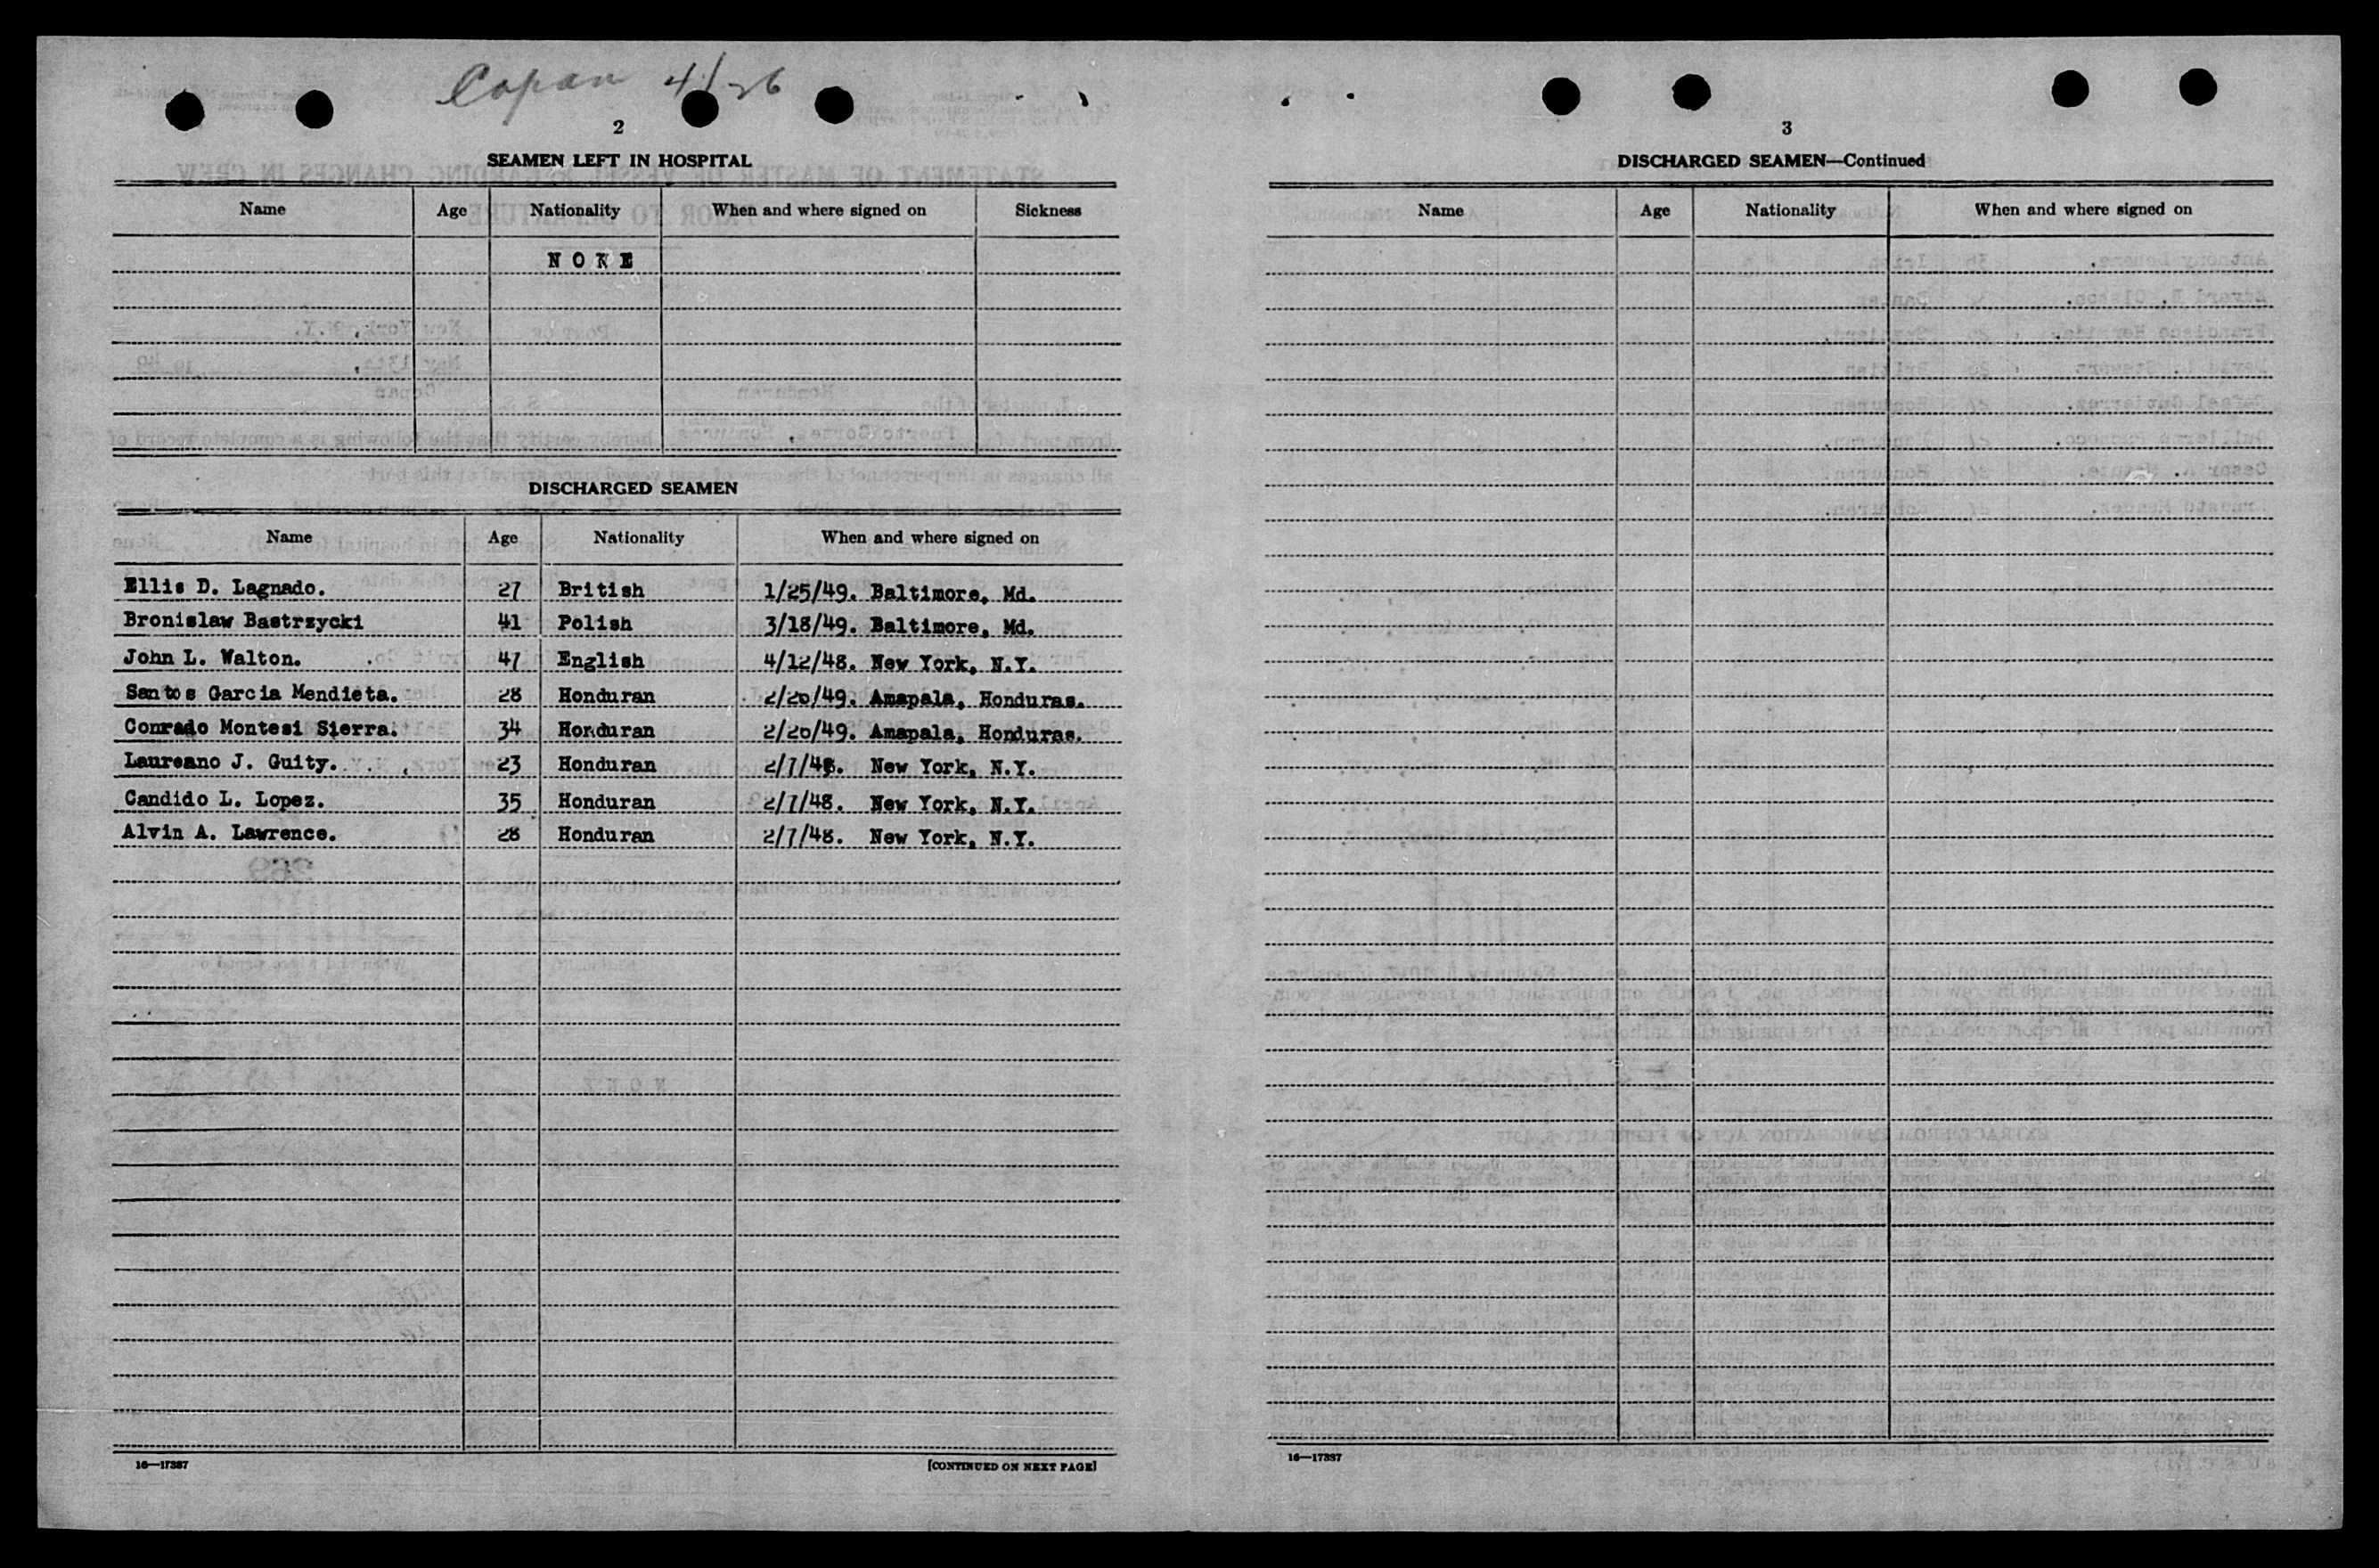 Copan 4/26
2
SEAMEN LEFT IN HOSPITAL
Name Age Nationality When and where signed on Sickness
NONE
DISCHARGED SEAMEN
Name Age Nationality When and where signed on
Ellis D. Lagnado. 27 British 1/25/49. Baltimore, Md.
Bronislaw Bastrzycki 41 Polish 3/18/49. Baltimore, Md.
John L. Walton. 47 English 4/12/48. New York, N.Y.
Santos Garcia Mendieta. 28 Honduran 2/20/49. Amapala, Honduras.
Conrado Montesi Sierra. 34 Honduran 2/20/49. Amapala, Honduras.
Laureano J. Guity. 23 Honduran 2/7/48. New York, N.Y.
Candido L. Lopez. 35 Honduran 2/7/48. New York, N.Y.
Alvin A. Lawrence. 28 Honduran 2/7/48. New York, N.Y.
16—17387
[CONTINUED ON NEXT PAGE]
3
DISCHARGED SEAMEN—Continued
Name Age Nationality When and where signed on
16—17387